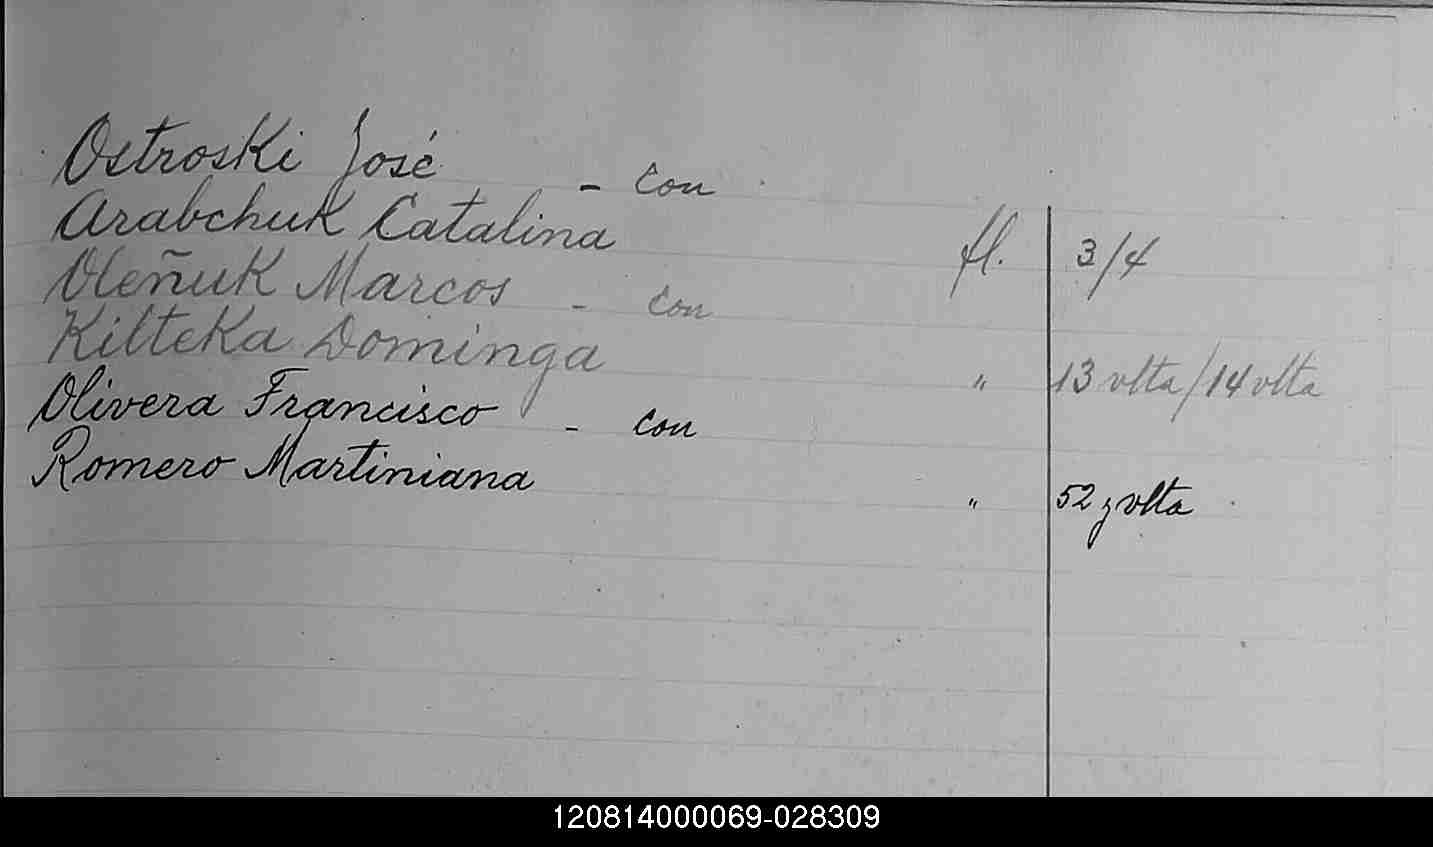 Ostroski José - con
Arabchuk Catalina fl. 3/4
Oleñuk Marcos - con
Kilteka Dominga " 13 vlta/14 vlta
Olivera Francisco - con
Romero Martiniana " 52 y vlta
120814000069-028309